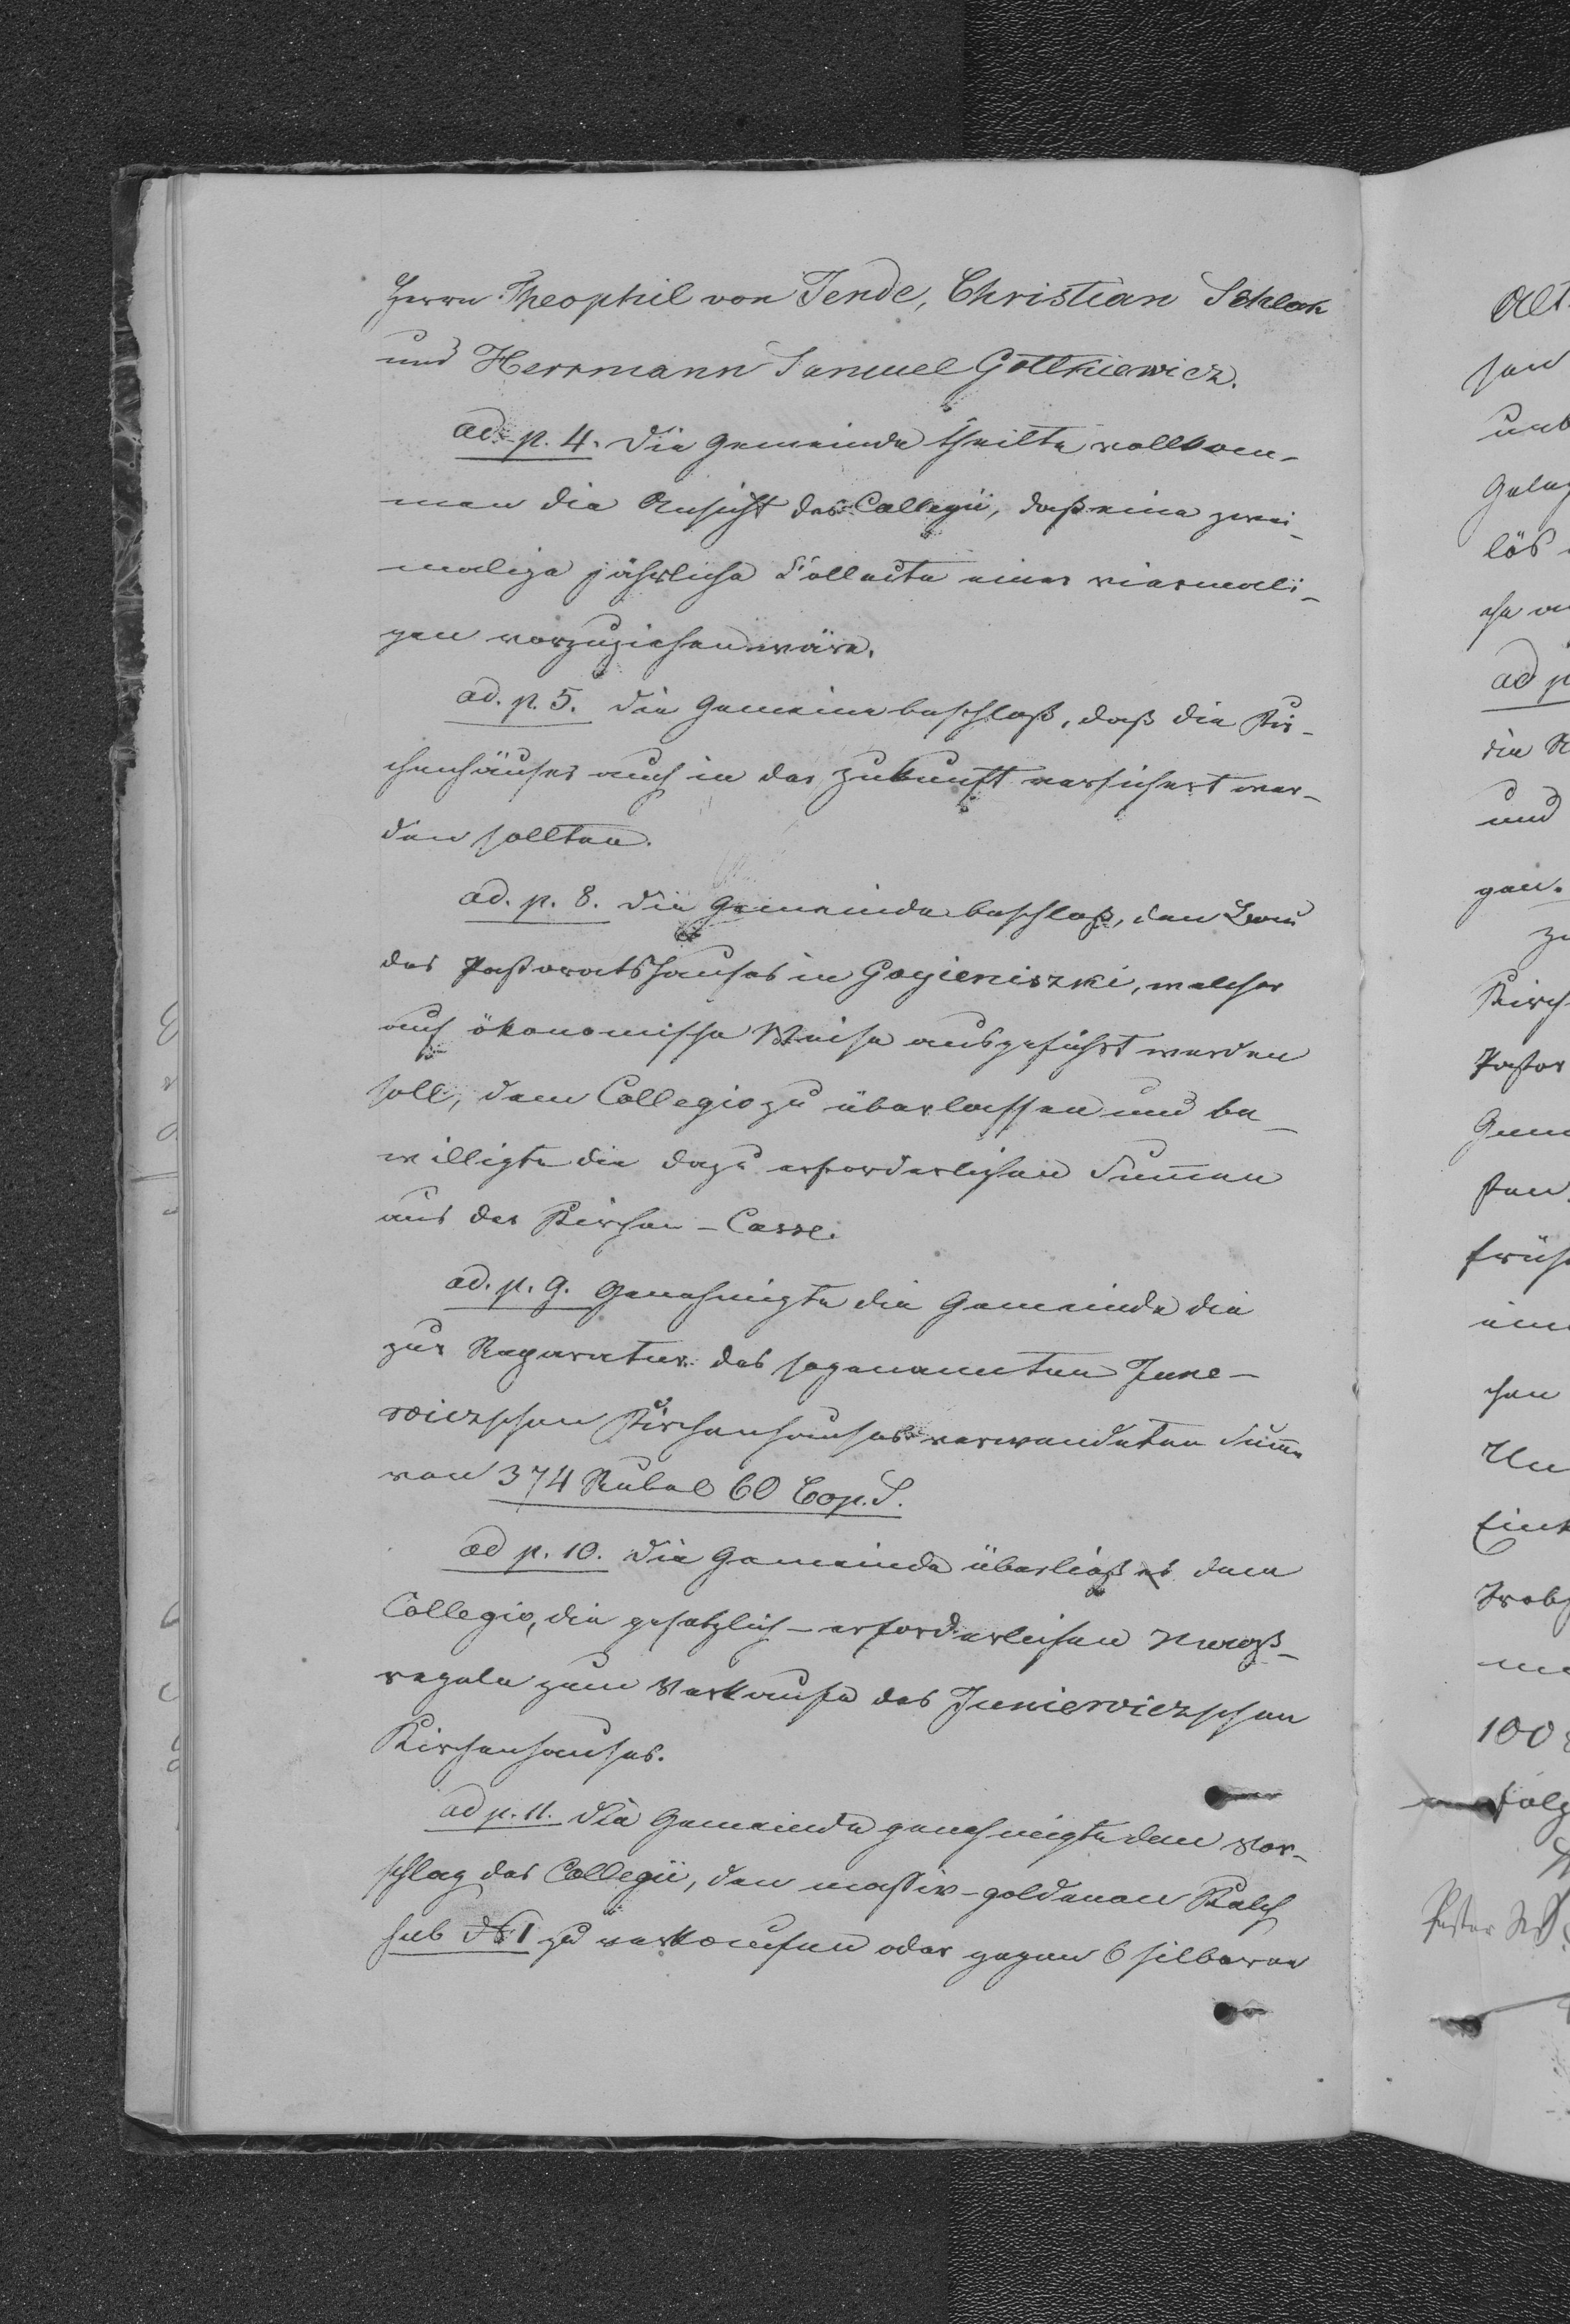 Herrn Theophil von Tende, Christian Schlenk
und Herrmann Samuel Gottkiewicz.
ad. p. 4. Die Gemeinde theilte vollkom-
men die Ansicht des Collegii, daß eine zwei-
malige jährliche Collecte einer viermali-
gen vorzuziehen wäre.
ad. p. 5. Die Gemeine beschloß, daß die Kir-
chenhäuser auch in der Zukunft versichert wer-
den sollten.
ad. p. 8. Die Gemeinde beschloß, den Bau
des Pastoratshauses in Gayieniszki, welcher
auf ökonomische Weise ausgeführt werden
soll, dem Collegio zu überlassen und be-
willigte die dazu erforderlichen Sum̄en
aus der Kirchen-Casse.
ad. p. 9. Genehmigte die Gemeinde die
zur Reparatur des sogenannten June-
wiczschen Kirchenhauses verwendeten Sum̄e
von 374 Rubel 60 Cop. S.
ad p. 10. Die Gemeinde überließ es dem
Collegio, die gesetzlich-erforderlichen Maaß-
regeln zum Verkaufe des Juniewiczschen
Kirchenhauses.
ad p. 11. Die Gemeinde genehmigte den Vor-
schlag des Collegii, den massiv-goldenen Kelch
sub № 1 zu verkaufen oder gegen 6 silberne
Alt-
und
gen.
Kirch-
Pastor
100
folg
Pastor